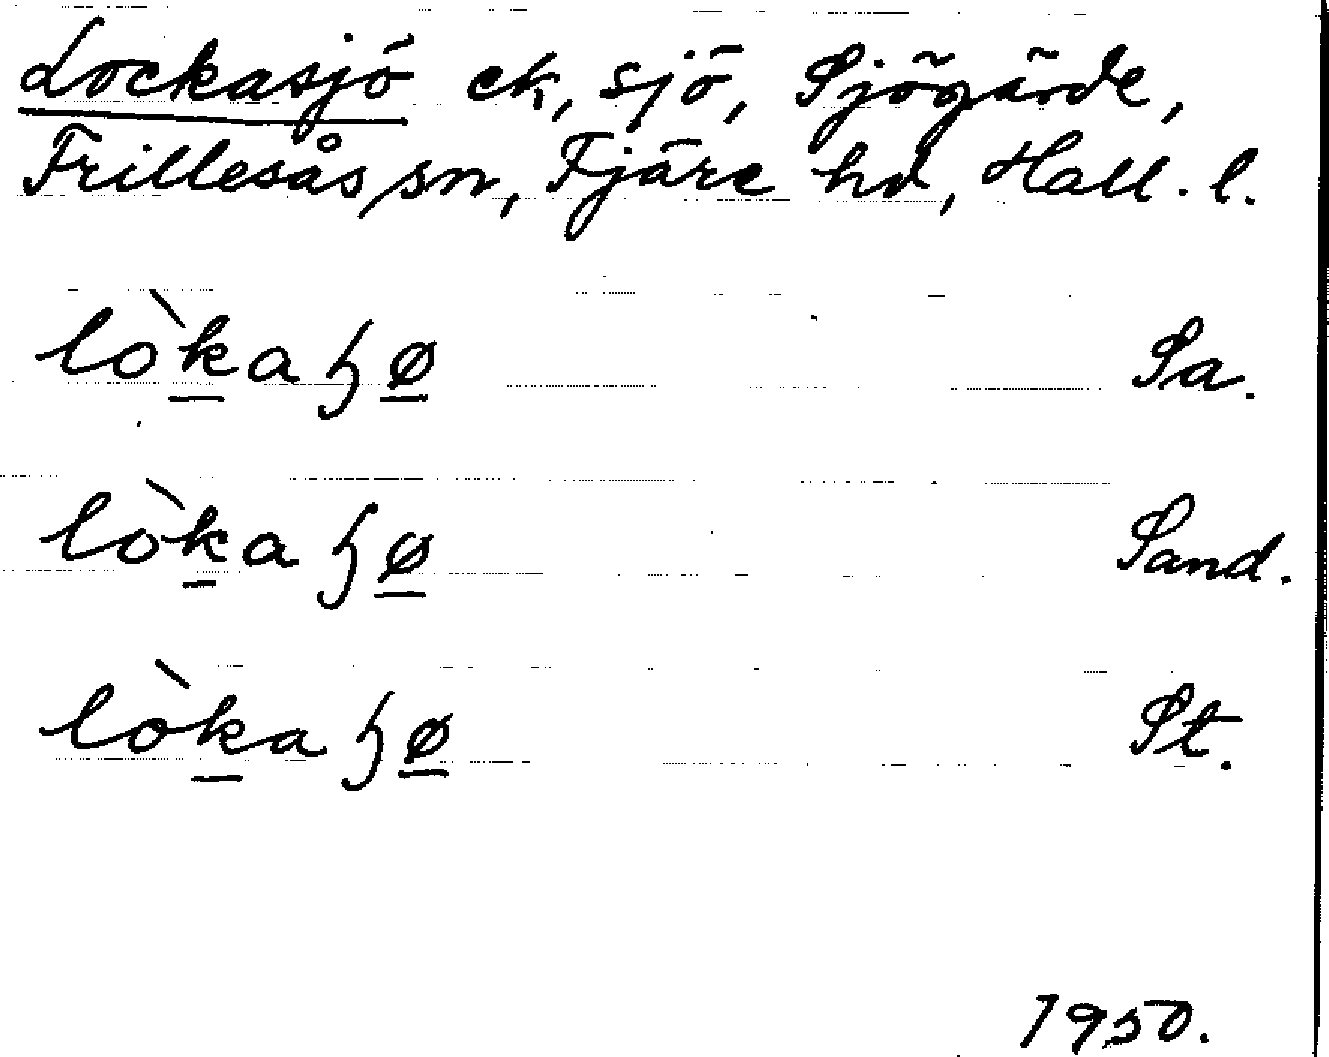 Lockasjö ek, sjö, Sjögärde,
Frillesås sn, Fjäre hd, Hall. l.
lòka ɧø Sa.
lòka ɧø Sand.
lòka ɧø St.
1950.